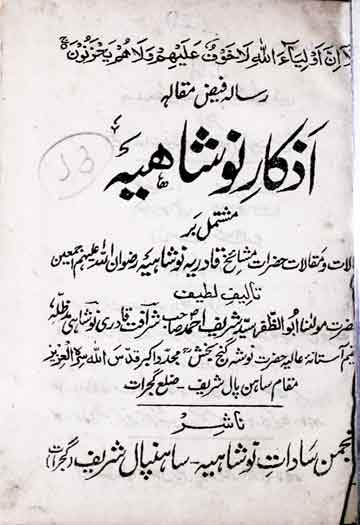 لا ان اولیاء الله لا خوف علیهم ولا هم یحزنون
رسالہ فیض مقالہ
اذکارِ نوشاہیہ
مشتمل بر
لات و مقالات حضرات مشائخ قادریہ نوشاہیہ رضوان اللہ علیہم اجمعین
تالیف لطیف
حضرت مولنا ابوالظفر سید شریف احمد صاحب شرافت قادری نوشاہی مدظلہ
یم آستانہ عالیہ حضرت نوشہ گنج بخش مجدد اکبر قدس اللہ سرہ العزیز
مقام ساہن پال شریف - ضلع گجرات
ناشر
نجمن سادات نوشاہیہ - ساہنپال شریف (گجرات)